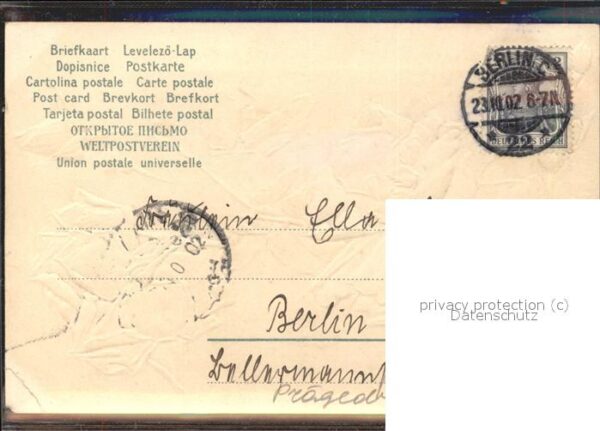 Briefkaart Levelező-Lap
Dopisnice Postkarte
Cartolina postale Carte postale
Post card Brevkort Brefkort
Tarjeta postal Bilhete postal
ОТКРЫТОЕ ПИСЬМО
WELTPOSTVEREIN
Union postale universelle
BERLIN C
23.10.02 6-7N.
DEUTSCHES REICH
Fräulein Ella
02
privacy protection (c)
Datenschutz
Berlin
Bellermannst
Präged